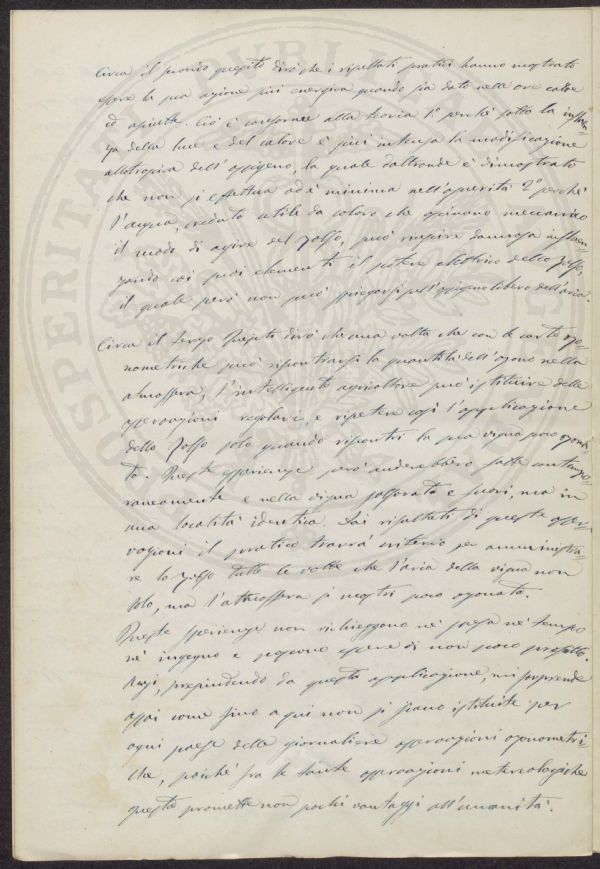 Circa il secondo quesito dirò che i risultati pratici hanno mostrato
essere la sua azione più energica quando sia dato nelle ore calde
ed asciutte. Ciò è conforme alla teoria 1º perchè sotto la influen-
za della luce e del calore è più intensa la modificazione
allotropica dell'ossigeno, la quale daltronde è dimostrato
che non si effettua od è minima nell'oscurità 2º perchè
l'acqua, creduta utile da coloro che opinano meccanico
il modo di agire del zolfo, può riuscire dannosa influen-
zando coi suoi elementi il potere elettrico dello zolfo,
il quale però non può spiegarsi sull'ossigeno libero dell'aria.
Circa il terzo Quesito dirò che una volta che con le carte ozo-
nometriche può riscontrarsi la quantità dell'ozono nella
atmosfera, l'intelligente agricoltore può istituire delle
osservazioni regolari, e ripetere così l'applicazione
dello Zolfo solo quando riscontri la sua vigna poco ozona-
ta. Queste esperienze però andrebbero fatte contempo-
raneamente e nella vigna solforata e fuori, ma in
una località identica. Dai risultati di queste osser-
vazioni il pratico trarrà criterio per amministra-
re lo zolfo tutte le volte che l'aria della vigna non
solo, ma l'atmosfera si mostri poco ozonata.
Queste sperienze non richieggono nè spesa nè tempo
nè ingegno e possono essere di non poco profitto.
Anzi, prescindendo da questa applicazione, mi sorprende
assai come fino a qui non si siano istituite per
ogni paese delle giornaliere osservazioni ozonometri-
che, poichè fra le tante osservazioni metereologiche
questa promette non pochi vantaggi all'umanità.
PROSPERITÀ PUBLICA